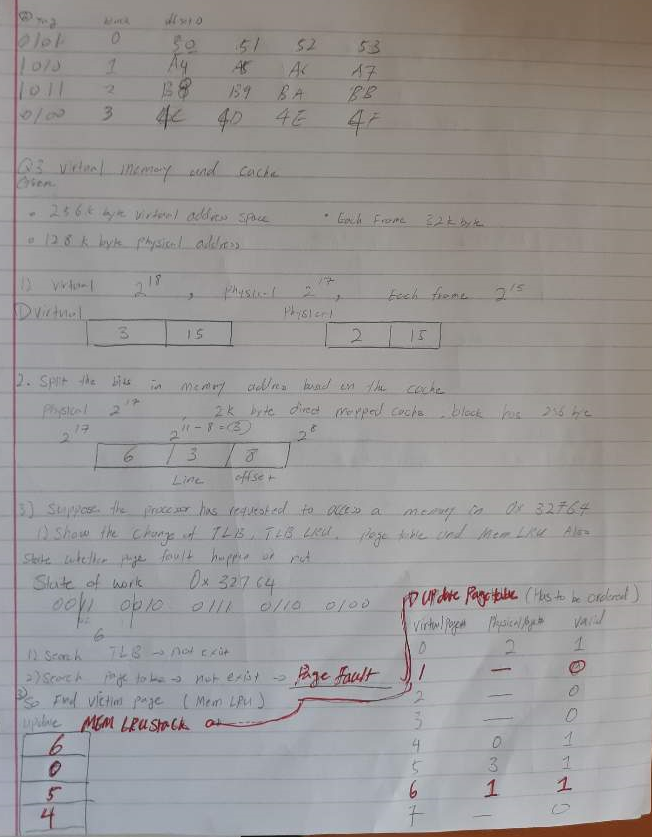 0101 0 50 51 52 53
1010 1 A4 A5 A6 A7
1011 2 B8 B9 BA BB
0100 3 4C 4D 4E 4F
Q3 virtual memory and cache
Given
• 256k byte virtual address space • Each Frame 32k byte
• 128k byte physical address
1) virtual 2^18, physical 2^17, Each frame 2^15
① Virtual Physical
3 15 2 15
2. Split the bits in memory address based on the cache
Physical 2^17, 2k byte direct mapped cache, block has 256 byte
2^17 2^11-8=(3) 2^8
6 3 8
Line offset
3) Suppose the processor has requested to access a memory in 0x32764
1) Show the change of TLB, TLB LRU, Page table and Mem LRU Also
State whether page fault happen or not
State of work 0x32764
0011 0010 0111 0110 0100
6
1) Search TLB → not exist
2) Search Page table → not exist → Page Fault
3) So Find victim page (Mem LRU)
update MEM LRU STACK
6
0
5
4
① Update Page table (Has to be ordered)
Virtual Page# Physical Page# Valid
0 2 1
1 — 0
2 — 0
3 — 0
4 0 1
5 3 1
6 1 1
7 — 0